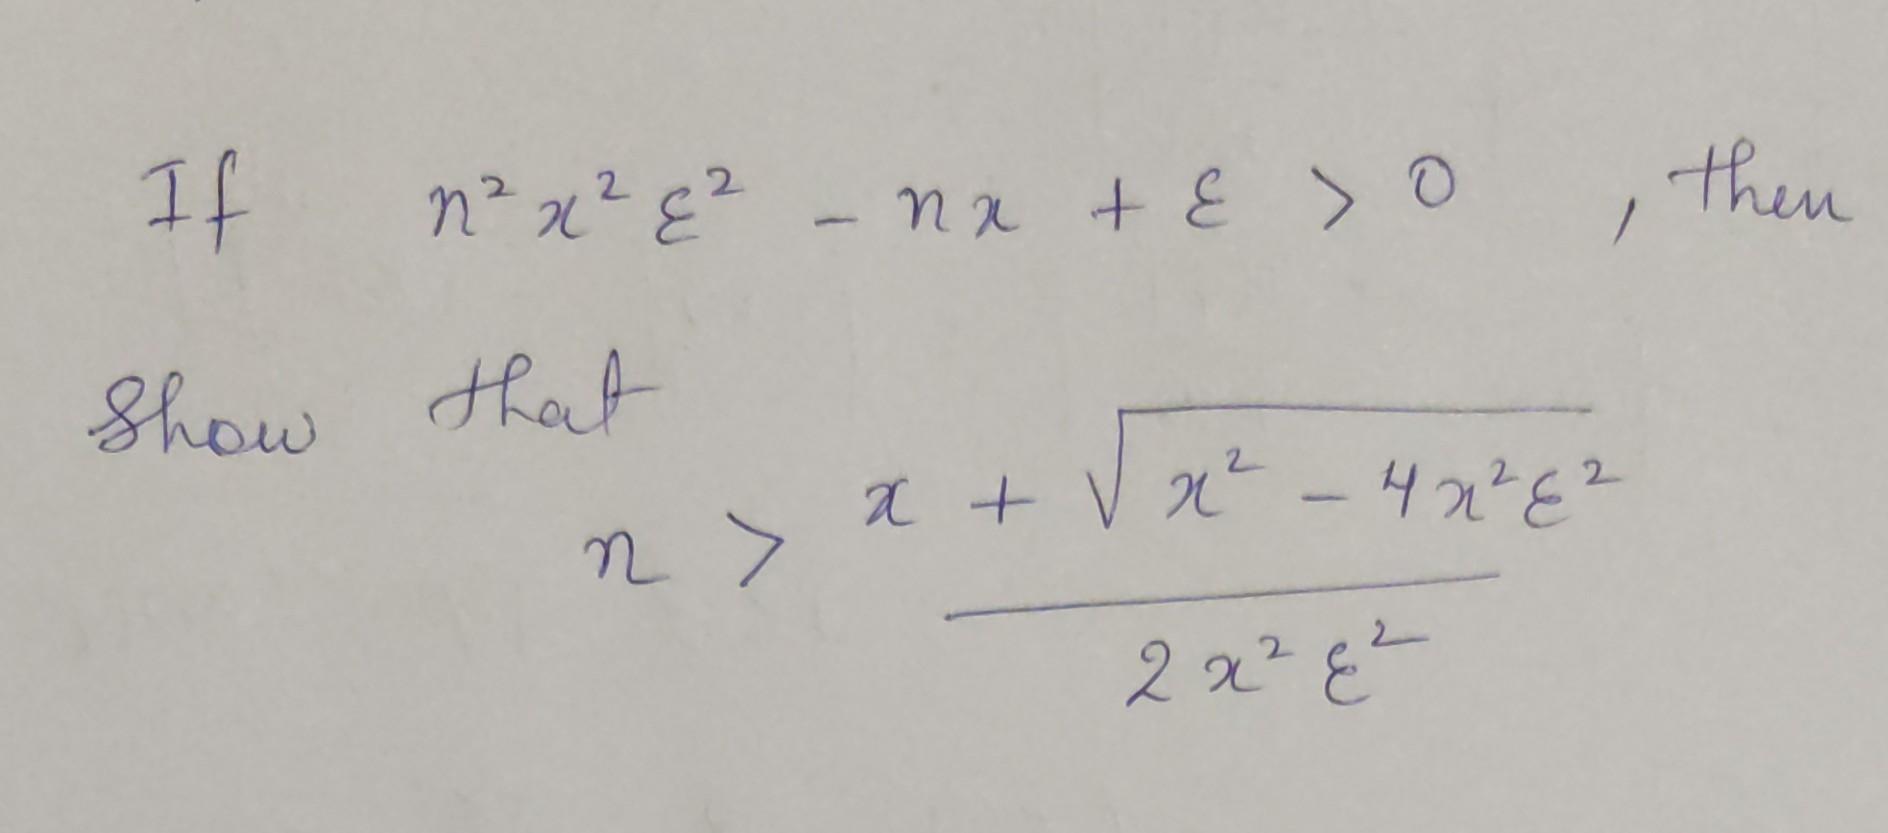 If n² x² ε² - nx + ε > 0 , then
Show that
n > x + √x² - 4x²ε²
2x² ε²